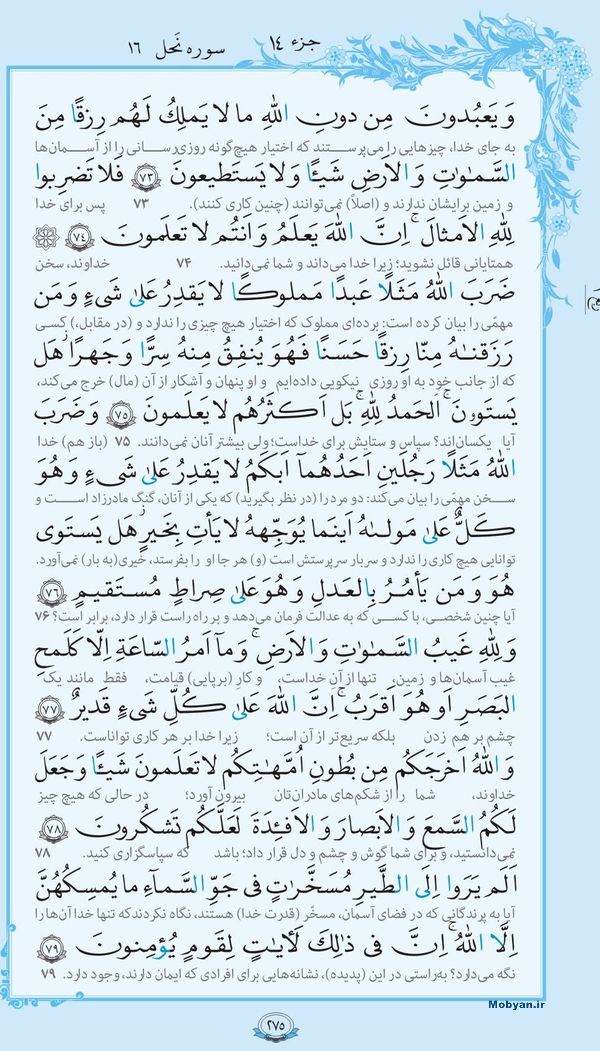 جزء ۱۴
سوره نَحل ۱۶
وَ يَعبُدونَ مِن دونِ اللّٰهِ ما لا يَملِكُ لَهُم رِزقًا مِنَ
به جای خدا، چیزهایی را می‌پرستند که اختیار هیچ‌گونه روزی‌رسانی را از آسمان‌ها
السَّمـٰوٰتِ وَ الاَرضِ شَيـًٔا وَلا يَستَطيعونَ ﴿۷۳﴾ فَلا تَضرِبوا
و زمین برایشان ندارند و (اصلاً) نمی‌توانند (چنین کاری کنند). ۷۳ پس برای خدا
لِلّٰهِ الاَمثالَ ۚ اِنَّ اللّٰهَ يَعلَمُ وَ اَنتُم لا تَعلَمونَ ﴿۷۴﴾
همتایانی قائل نشوید؛ زیرا خدا می‌داند و شما نمی‌دانید. ۷۴ خداوند، سخن
ضَرَبَ اللّٰهُ مَثَلًا عَبدًا مَملوكًا لا يَقدِرُ عَلىٰ شَىءٍ وَ مَن
مهمّی را بیان کرده است: برده‌ای مملوک که اختیار هیچ چیزی را ندارد و (در مقابل،) کسی
رَزَقنـٰهُ مِنّا رِزقًا حَسَنًا فَهُوَ يُنفِقُ مِنهُ سِرًّا وَ جَهرًا ۖ هَل
که از جانب خود به او روزی نیکویی داده‌ایم و او پنهان و آشکار از آن (مال) خرج می‌کند،
يَستَوۥنَ ۚ الحَمدُ لِلّٰهِ ۚ بَل اَكثَرُهُم لا يَعلَمونَ ﴿۷۵﴾ وَ ضَرَبَ
آیا یکسان‌اند؟ سپاس و ستایش برای خداست؛ ولی بیشتر آنان نمی‌دانند. ۷۵ (باز هم) خدا
اللّٰهُ مَثَلًا رَجُلَينِ اَحَدُهُمآ اَبكَمُ لا يَقدِرُ عَلىٰ شَىءٍ وَ هُوَ
سخن مهمّی را بیان می‌کند: دو مرد را (در نظر بگیرید) که یکی از آنان، گنگِ مادرزاد است و
كَلٌّ عَلىٰ مَولىٰهُ اَينَما يُوَجِّههُ لا يَأتِ بِخَيرٍ ۖ هَل يَستَوى
توانایی هیچ کاری را ندارد و سربار سرپرستش است (و) هر جا او را بفرستد، خیری (به بار) نمی‌آورد.
هُوَ وَ مَن يَأمُرُ بِالعَدلِ وَ هُوَ عَلىٰ صِراطٍ مُستَقيمٍ ﴿۷۶﴾
آیا چنین شخصی، با کسی که به عدالت فرمان می‌دهد و بر راه راست قرار دارد، برابر است؟ ۷۶
وَ لِلّٰهِ غَيبُ السَّمـٰوٰتِ وَ الاَرضِ ۚ وَ مآ اَمرُ السّاعَةِ اِلّا كَلَمحِ
غیب آسمان‌ها و زمین، تنها از آنِ خداست، و کارِ (برپایی) قیامت، فقط مانند یک
البَصَرِ اَو هُوَ اَقرَبُ ۚ اِنَّ اللّٰهَ عَلىٰ كُلِّ شَىءٍ قَديرٌ ﴿۷۷﴾
چشم بر هم زدن بلکه سریع‌تر از آن است؛ زیرا خدا بر هر کاری تواناست. ۷۷
وَ اللّٰهُ اَخرَجَكُم مِن بُطونِ اُمَّهـٰتِكُم لا تَعلَمونَ شَيـًٔا وَ جَعَلَ
خداوند، شما را از شکم‌های مادران‌تان بیرون آورد؛ در حالی که هیچ چیز
لَكُمُ السَّمعَ وَ الاَبصارَ وَ الاَفـِٔدَةَ ۙ لَعَلَّكُم تَشكُرونَ ﴿۷۸﴾
نمی‌دانستید، و برای شما گوش و چشم و دل قرار داد؛ باشد که سپاسگزاری کنید. ۷۸
اَلَم يَرَوا اِلَى الطَّيرِ مُسَخَّرٰتٍ فى جَوِّ السَّمآءِ ما يُمسِكُهُنَّ
آیا به پرندگانی که در فضای آسمان، مسخّر (قدرت خدا) هستند، نگاه نکردند که تنها خدا آن‌ها را
اِلَّا اللّٰهُ ۗ اِنَّ فى ذٰلِكَ لَأيـٰتٍ لِقَومٍ يُؤمِنونَ ﴿۷۹﴾
نگه می‌دارد؟ به‌راستی در این (پدیده)، نشانه‌هایی برای افرادی که ایمان دارند، وجود دارد. ۷۹
Mobyan.ir
۲۷۵